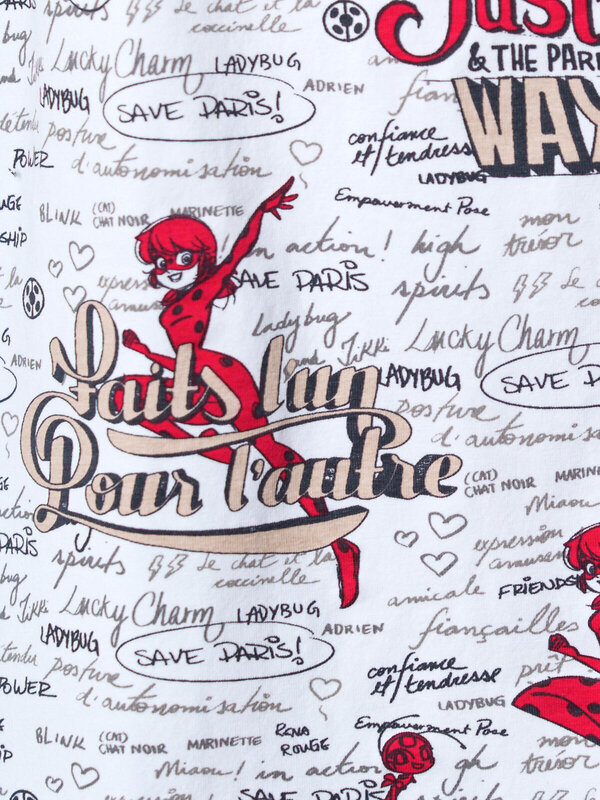 spirits Le chat et la
coccinelle
Just
& THE PARI
WAY
Lucky Charm LADYBUG
ADRIEN
LADYBUG
SAVE PARIS!
posture
POWER
d'autonomisation
confiance
et/tendresse
LADYBUG
Empowerment Pose
BLINK (CAT)
CHAT NOIR MARINETTE
SHIP
! in action! high
mon
trésor
SAVE PARIS
spirits
expression
Ladybug
and Tikki Lucky Charm
LADYBUG
SAVE PARIS
ADRIEN
Faits l'un
Pour l'autre
posture
d'autonomisa
(CAT)
CHAT NOIR MARINETTE
Miaou!
PARIS
spirits Le chat et la
coccinelle
expression
amusen
amicale FRIENDS
Tikki Lucky Charm LADYBUG
ADRIEN
fiançailles
LADYBUG
SAVE PARIS!
posture
POWER
d'autonomisation
confiance
et/tendresse
prêt
LADYBUG
Empowerment Pose
BLINK (CAT)
CHAT NOIR MARINETTE
RENA
ROUGE
Miaou! in action
high
mon
trésor
SAVE PARIS
spirits